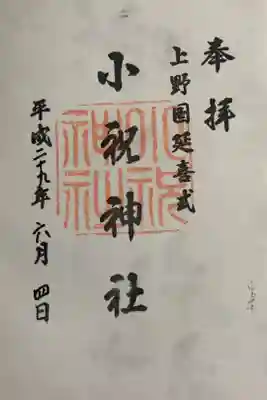 奉拝
上野国延喜式
小祝神社
平成二十九年 六月 四日
小祝神社